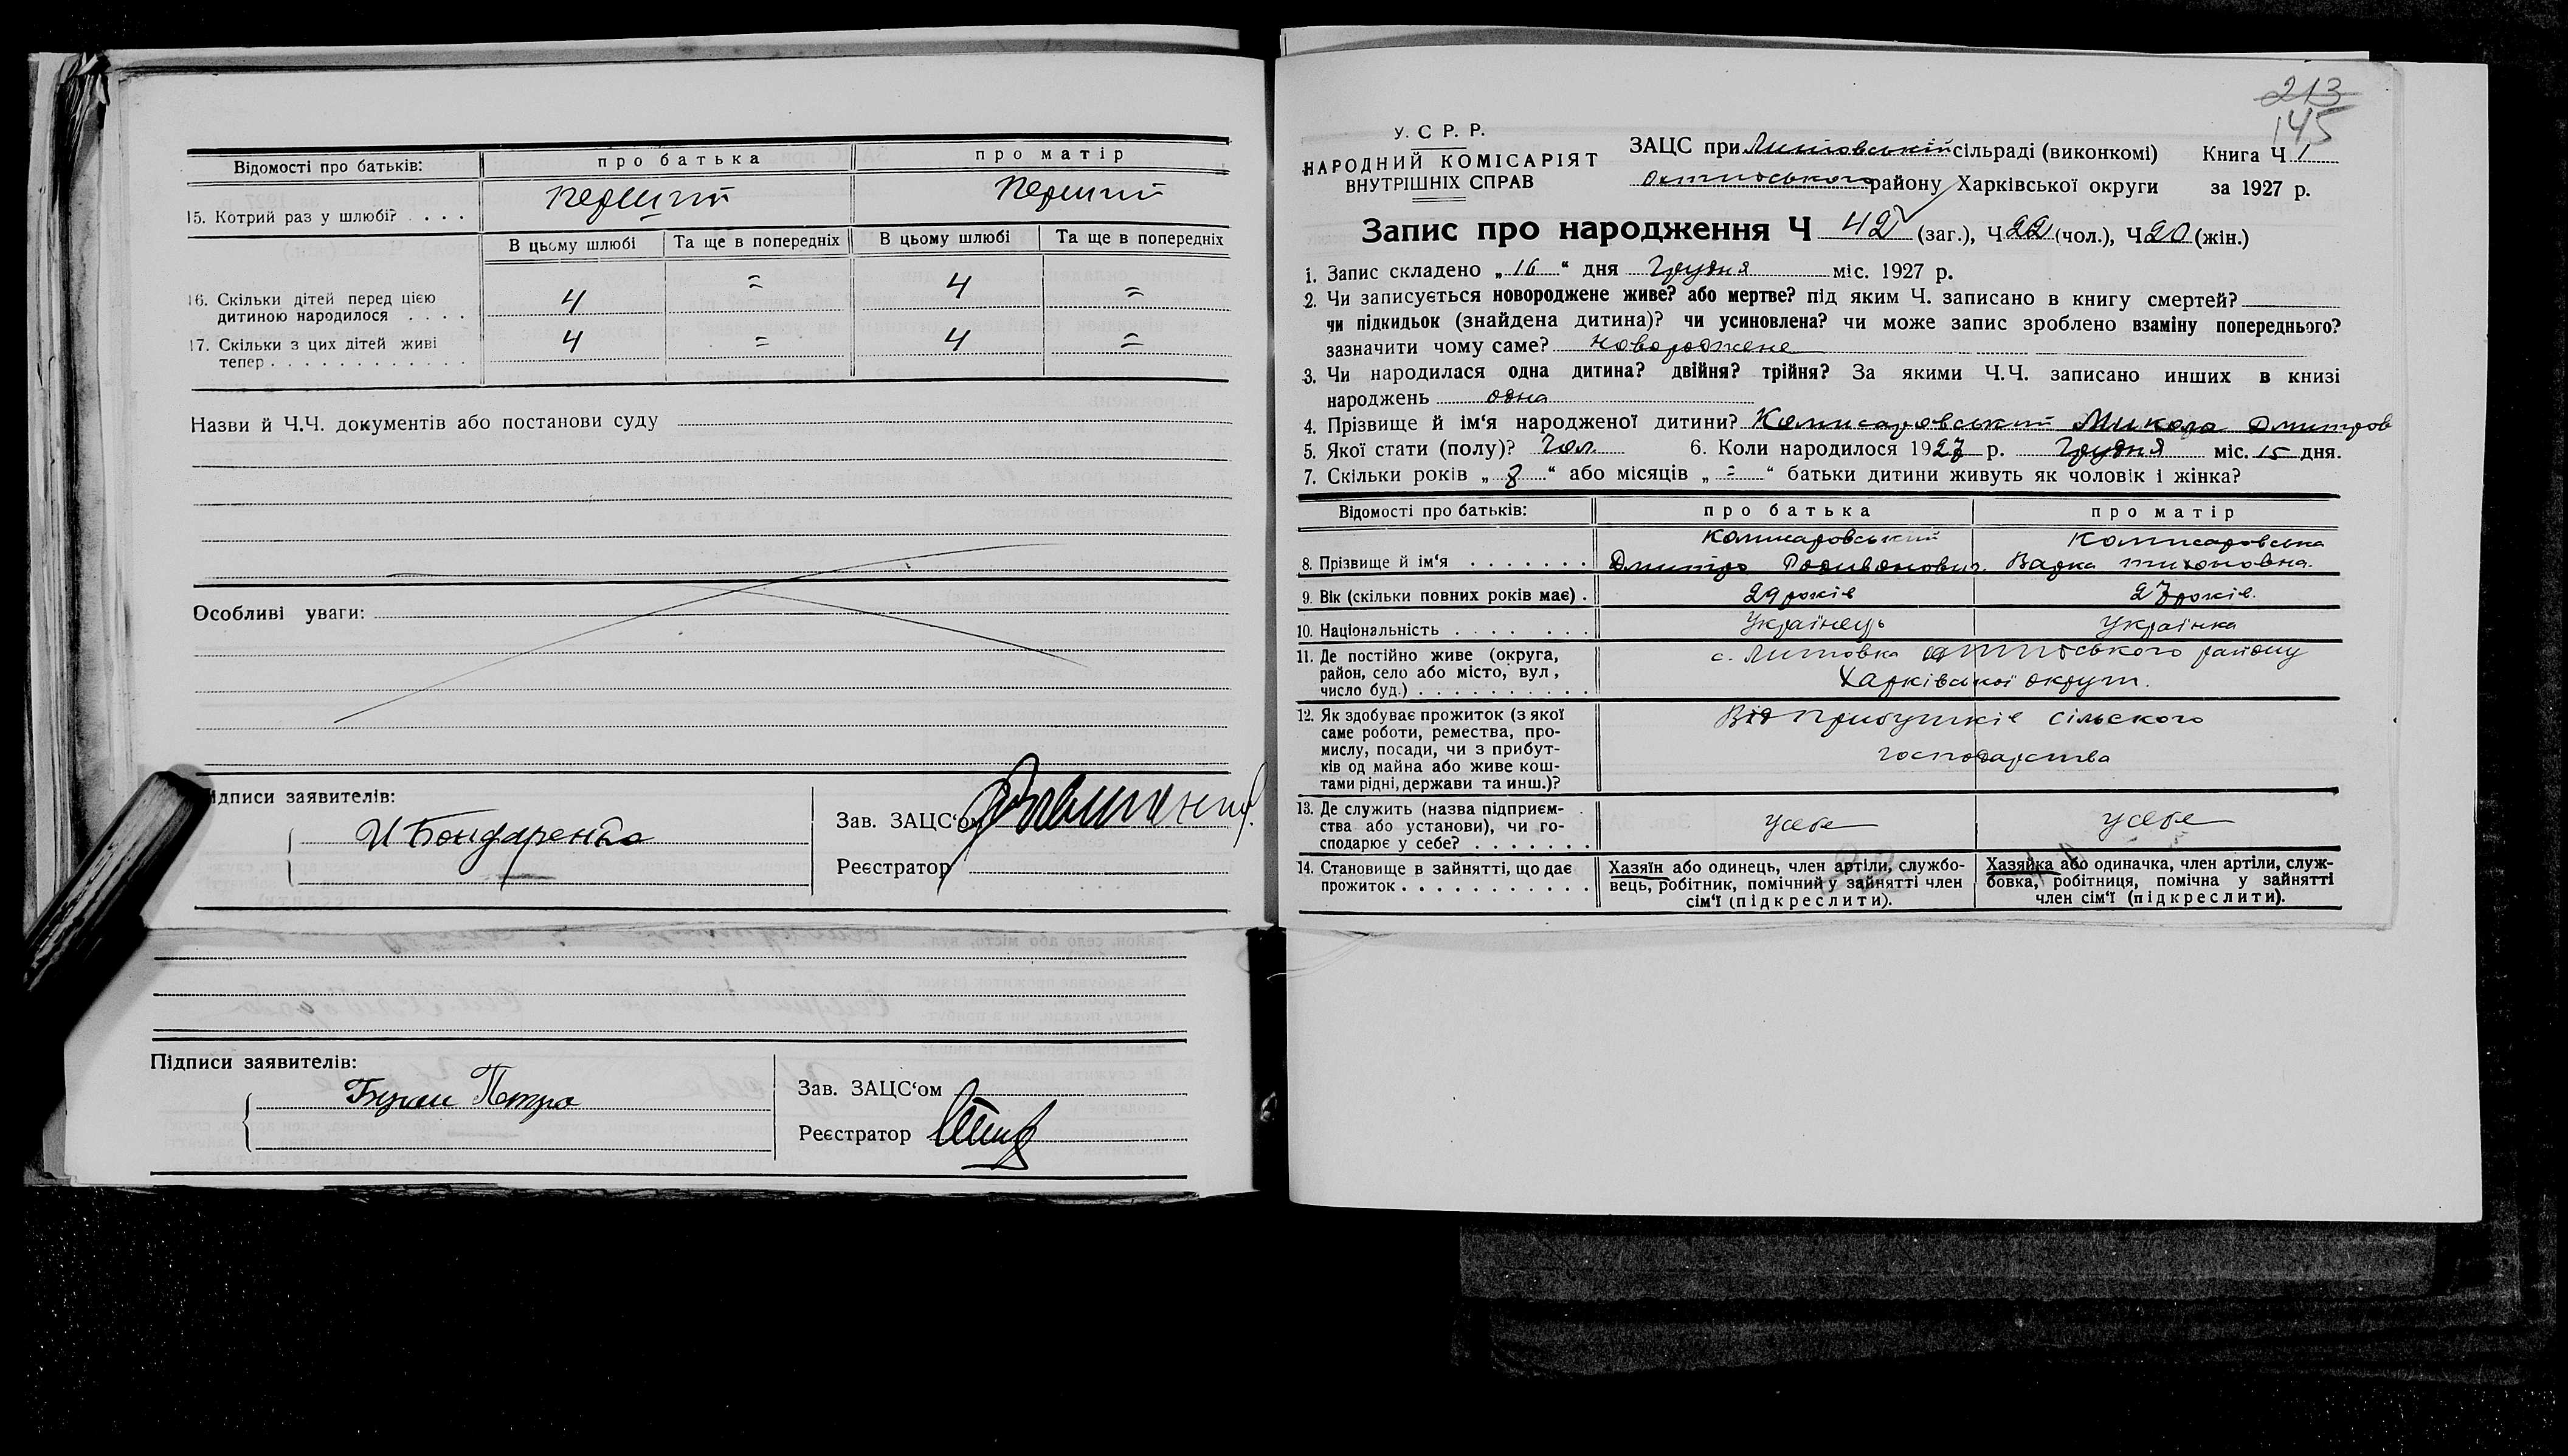 Відомості про батьків: про батька про матір
15. Котрий раз у шлюбі? . . . . перший перший
В цьому шлюбі Та ще в попередніх В цьому шлюбі Та ще в попередніх
16. Скільки дітей перед цією
дитиною народилося . . . . 4 = 4 =
17. Скільки з цих дітей живі
тепер . . . . . . . . . . . . 4 = 4 =
Назви й Ч.Ч. документів або постанови суду
Особливі уваги:
ідписи заявителів:
И Бондаренко
Зав. ЗАЦС‘ом
Реєстратор
Підписи заявителів:
Петро
Зав. ЗАЦС‘ом
Реєстратор
213
145
У. С Р. Р.
НАРОДНИЙ КОМІСАРІЯТ
ВНУТРІШНІХ СПРАВ
ЗАЦС при Литовській сільраді (виконкомі) Книга Ч 1
району Харківської округи за 1927 р.
Запис про народження Ч 42 (заг.), Ч 22 (чол.), Ч 20 (жін.)
1. Запис складено „ 16 “ дня Грудня міс. 1927 р.
2. Чи записується новороджене живе? або мертве? під яким Ч. записано в книгу смертей?
чи підкидьок (знайдена дитина)? чи усиновлена? чи може запис зроблено взаміну попереднього?
зазначити чому саме? Новороджене
3. Чи народилася одна дитина? двійня? трійня? За якими Ч.Ч. записано инших в книзі
народжень одна
4. Прізвище й ім‘я народженої дитини? Комисаровський Микола Дмитров
5. Якої стати (полу)? Чол. 6. Коли народилося 1927 р. Грудня міс. 15 дня.
7. Скільки років „ 8 “ або місяців „ = “ батьки дитини живуть як чоловік і жінка?
Відомості про батьків: про батька про матір
Комисаровський Комисаровська
8. Прізвище й ім‘я . . . . . . . Дмитро Родивонович. Варка Тихоновна.
9. Вік (скільки повних років має) . 29 років 27 років.
10. Національність . . . . . . . Українець Українка
11. Де постійно живе (округа,
район, село або місто, вул,
число буд.) . . . . . . . . . . с. Литовка району
Харківської округи.
12. Як здобуває прожиток (з якої
саме роботи, ремества, про-
мислу, посади, чи з прибут-
ків од майна або живе кош-
тами рідні, держави та инш.)?
Від прибутків сільского
господарства
13. Де служить (назва підприєм-
ства або установи), чи го-
сподарює у себе? . . . . . . . усебе усебе
14. Становище в зайнятті, що дає
прожиток . . . . . . . . . . .
Хазяїн або одинець, член артіли, службо-
вець, робітник, помічний у зайнятті член
сім‘ї (підкреслити).
Хазяйка або одиначка, член артіли, служ-
бовка, робітниця, помічна у зайнятті
член сім‘ї (підкреслити).